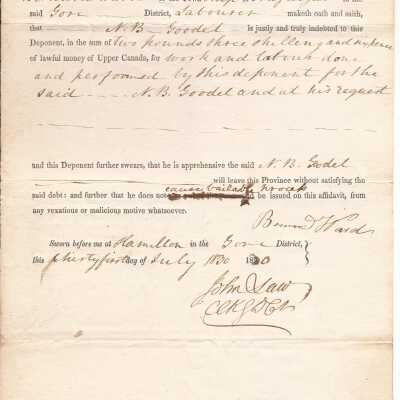 said Gore District, Labourer maketh oath and saith,
that N. B. Goodel is justly and truly indebted to this
Deponent, in the sum of two pounds three shilling and sixpence
of lawful money of Upper Canada, for work and labour done
and performed by this deponent for the
said N. B. Goodel and at his request
and this Deponent further swears, that he is apprehensive the said N. B. Godel
will leave this Province without satisfying the
said debt: and further that he does not cause bailable process to be issued on this affidavit, from
any vexatious or malicious motive whatsoever.
Ward
Sworn before me at Hamilton in the Gore District,
this thirty first day of July 1830 1830
John Law